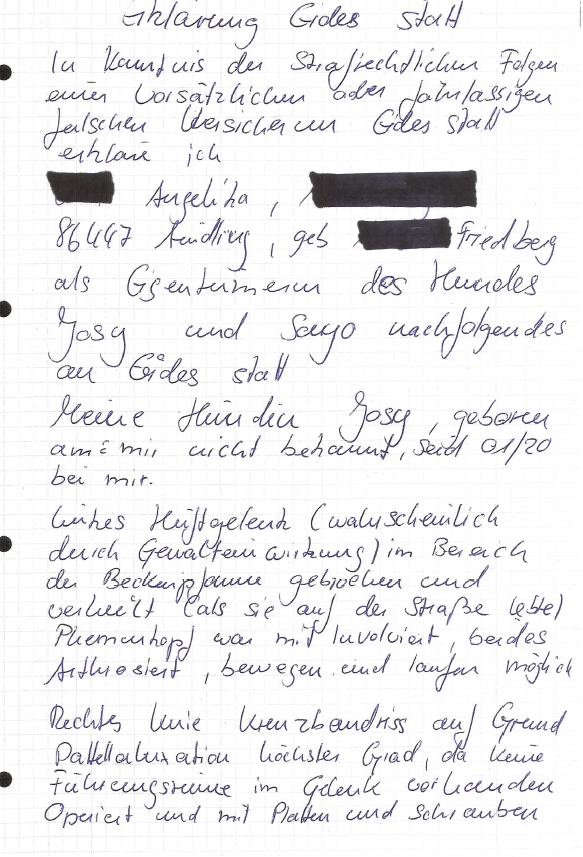 Erklärung Eides statt
In Kenntnis der Strafrechtlichen Folgen
einer Vorsätzlichen oder fahrlässigen
falschen Versicherun Eides statt
erkläre ich
Angelika,
86447 Aindling, geb Friedberg
als Eigentümerin des Hundes
Josy und Sayo nachfolgendes
an Eides statt
Meine Hündin Josy, geboren
am: mir nicht bekannt, seid 01/20
bei mir.
linkes Hüftgelenk (wahrscheinlich
durch Gewalteinwirkung) im Bereich
der Beckenpfanne gebrochen und
verheilt (als sie auf der Straße lebte)
war mit Involviert, beides
Arthrosiert, bewegen und laufen möglich
Rechtes Knie Kreuzbandriss auf Grund
Patellaluxation höchster Grad, da keine
Führungsrinne im Gelenk vorhanden
Operiert und mit Platten und Schrauben